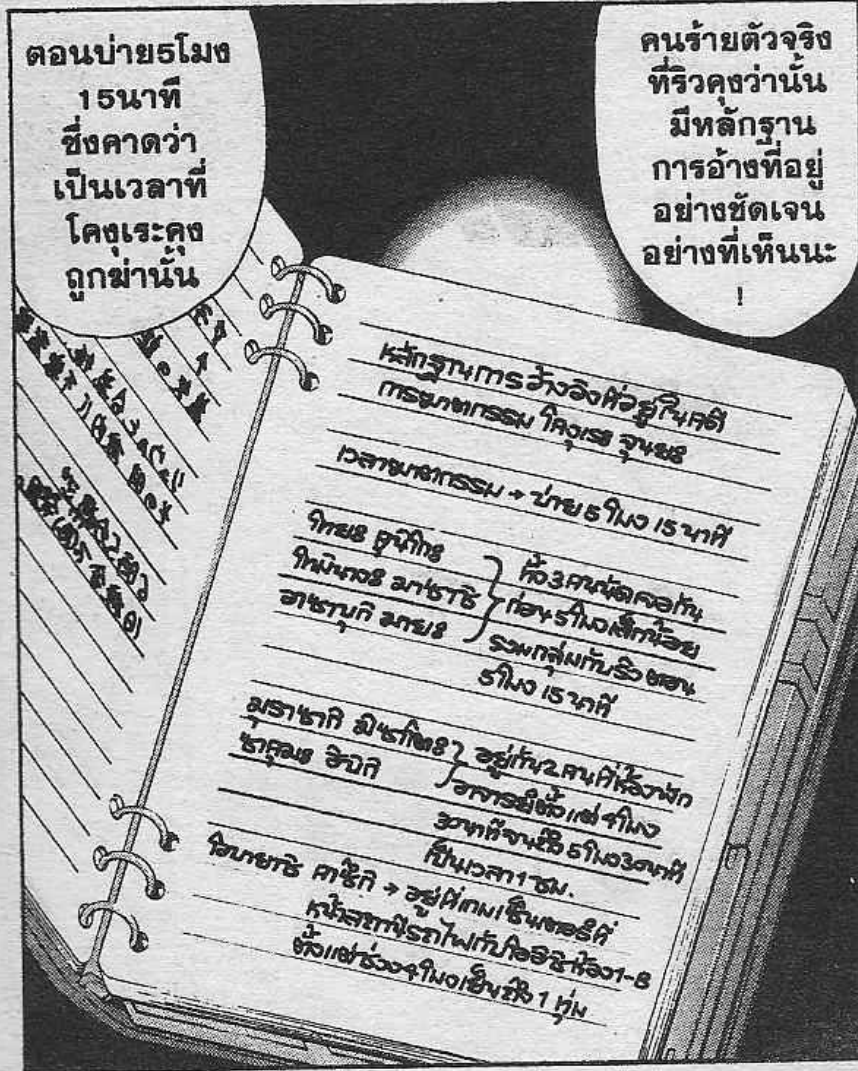 ตอนบ่าย5โมง
15นาที
ซึ่งคาดว่า
เป็นเวลาที่
โคงุเระคุง
ถูกฆ่านั้น
คนร้ายตัวจริง
ที่ริวคุงว่านั้น
มีหลักฐาน
การอ้างที่อยู่
อย่างชัดเจน
อย่างที่เห็นนะ
!
หลักฐานการอ้างอิงที่อยู่ในคดี
การฆาตกรรม โคงุเระ จุนยะ
เวลาฆาตกรรม → บ่าย 5 โมง 15 นาที
โทยะ คูนิโกะ
โทมินางะ มาซาชิ
อาซาบุกิ มายะ
ทั้ง 3 คนนัดเจอกัน
ก่อน 5 โมงเล็กน้อย
รวมกลุ่มกับริวตอน
5 โมง 15 นาที
มุราซากิ มิซาโตะ
ซาคุมะ ฮิบิกิ
อยู่กัน 2 คนที่ห้องพัก
อาจารย์ตั้งแต่ 4 โมง
30 นาทีจนถึง 5 โมง 30 นาที
เป็นเวลา 1 ชม.
โอบายาชิ คาซึกิ → อยู่ที่เกมเซ็นเตอร์ที่
หน้าสถานีรถไฟกับโออิชิห้อง 1-B
ตั้งแต่ช่วง 4 โมงเย็นถึง 1 ทุ่ม